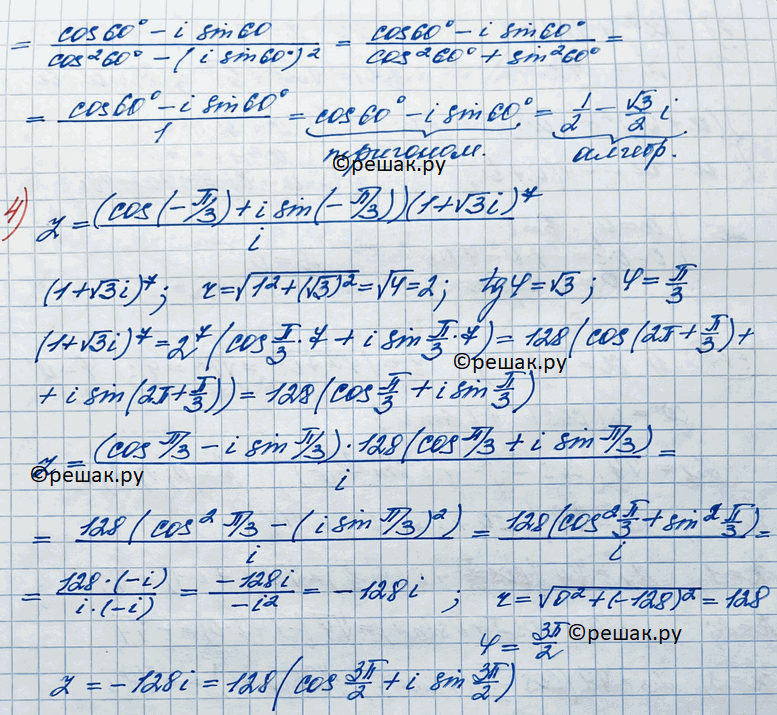 = (cos60° - i sin60)/(cos²60° - (i sin60°)²) = (cos60° - i sin60°)/(cos²60° + sin²60°) =
= (cos60° - i sin60°)/1 = cos60° - i sin60° = 1/2 - √3/2 i
тригоном. алгебр.
©решак.ру
4) z = ((cos(-π/3) + i sin(-π/3))(1+√3i)⁷)/i
(1+√3i)⁷; r=√(1²+(√3)²)=√4=2; tgφ=√3; φ=π/3
(1+√3i)⁷=2⁷(cos π/3·7 + i sin π/3·7) = 128(cos(2π+π/3)+
©решак.ру
+ i sin(2π+π/3)) = 128(cos π/3 + i sin π/3)
z = ((cos π/3 - i sin π/3)·128(cos π/3 + i sin π/3))/i =
©решак.ру
= (128(cos² π/3 - (i sin π/3)²))/i = (128(cos² π/3 + sin² π/3))/i =
= (128·(-i))/(i·(-i)) = (-128i)/(-i²) = -128i ; r=√(0²+(-128)²) = 128
φ = 3π/2
©решак.ру
z = -128i = 128(cos 3π/2 + i sin 3π/2)